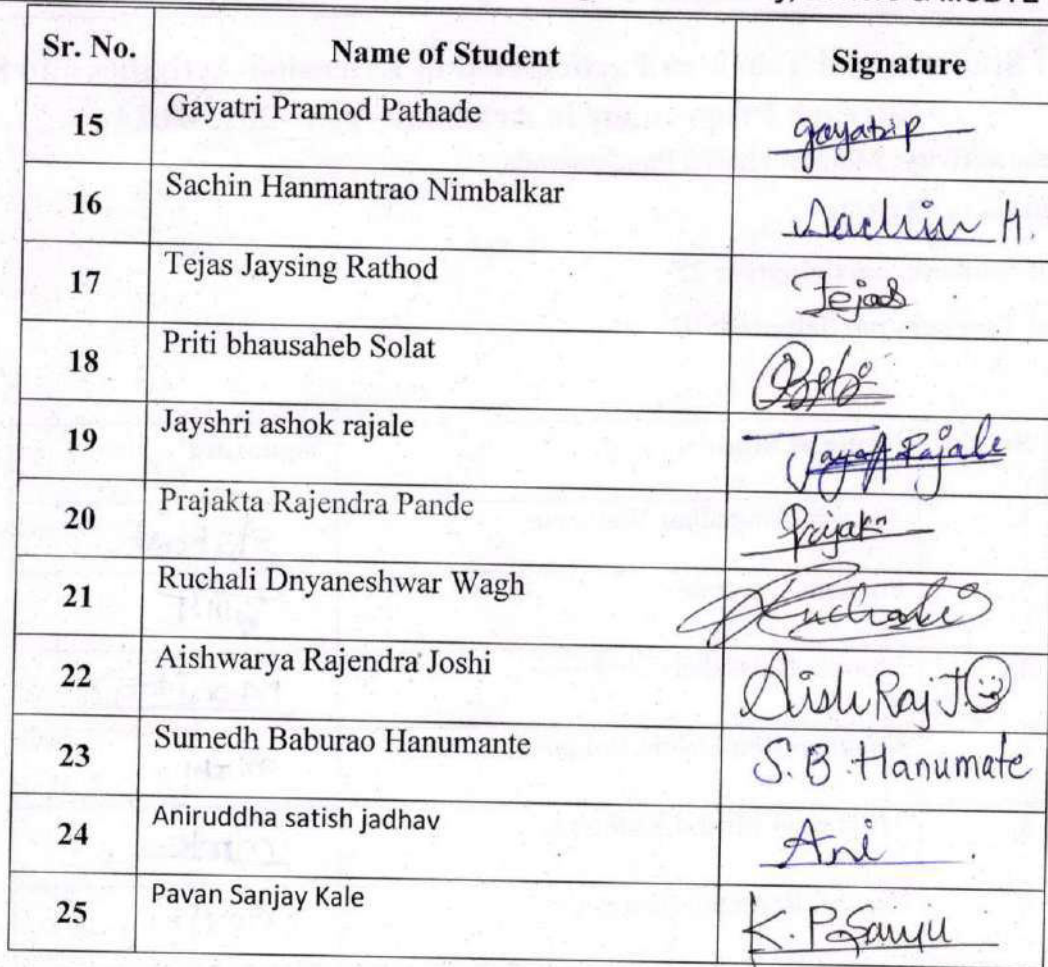 Sr. No. Name of Student Signature
15 Gayatri Pramod Pathade gayatrip
16 Sachin Hanmantrao Nimbalkar Sachin H.
17 Tejas Jaysing Rathod Tejas
18 Priti bhausaheb Solat
19 Jayshri ashok rajale Rajale
20 Prajakta Rajendra Pande
21 Ruchali Dnyaneshwar Wagh Ruchali
22 Aishwarya Rajendra Joshi Aish Raj J
23 Sumedh Baburao Hanumante S.B. Hanumate
24 Aniruddha satish jadhav Ani
25 Pavan Sanjay Kale K. P.